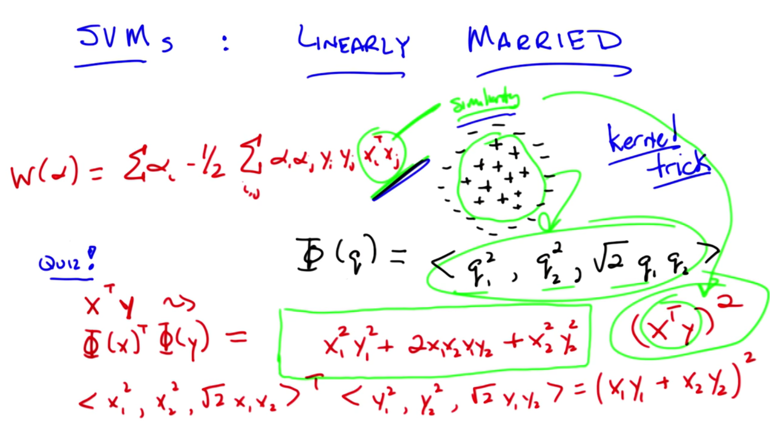 SVMs : LINEARLY MARRIED
similarity
kernel trick
W(α) = Σ αᵢ - 1/2 Σᵢ,ⱼ αᵢ αⱼ yᵢ yⱼ xᵢᵀxⱼ
Φ(q) = < q₁², q₂², √2 q₁ q₂ >
QUIZ!
xᵀy ↝
Φ(x)ᵀ Φ(y) = x₁²y₁² + 2x₁x₂y₁y₂ + x₂²y₂² (xᵀy)²
< x₁², x₂², √2 x₁x₂ >ᵀ < y₁², y₂², √2 y₁y₂ > = (x₁y₁ + x₂y₂)²